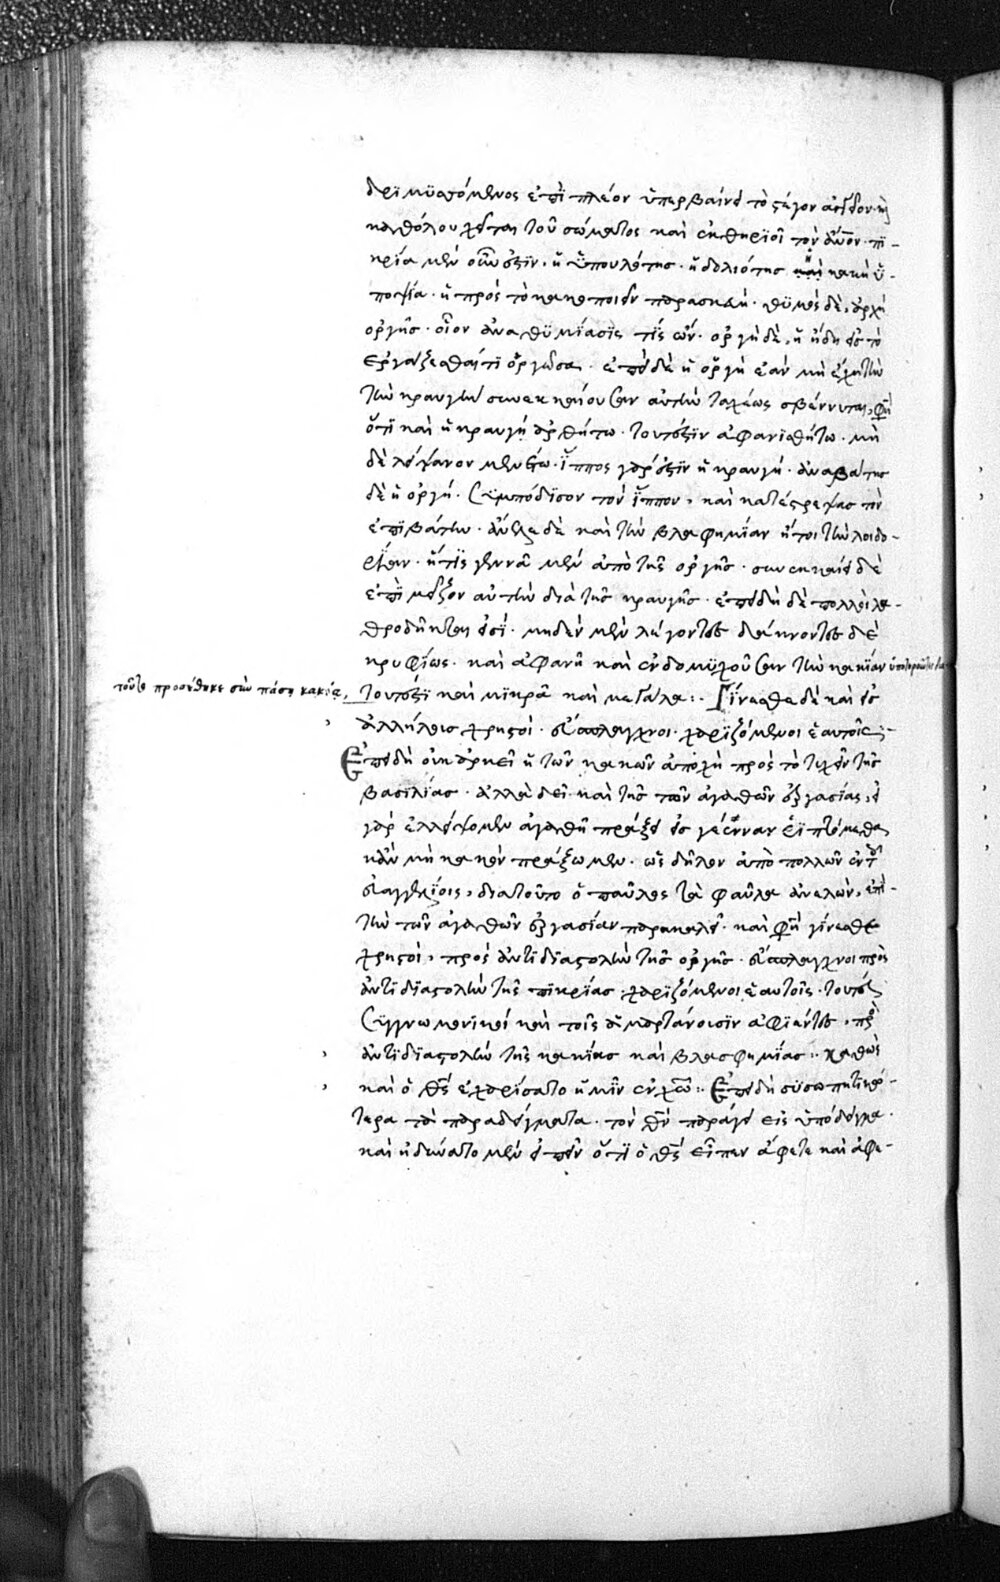 δριμυσσόμενος ἐπὶ πλέον ὑπερβαίνει τὸ στέγον ἀγγεῖον· καὶ
καθόλου χεῖται τοῦ σώματος καὶ ἐκθηριοῖ τὸν ἄνον· πι-
κρία μὲν οὖν ἐστὶν· ἡ ὑπουλότης· ἡ δολιότης κακὴ ὑ-
ποψία· ἡ πρὸς τὸ κακοποιεῖν παρασκευή· θυμὸς δὲ, ἀρχὴ
ὀργῆς· οἷον ἀναθυμίασίς τις ὤν· ὀργὴ δὲ, ἡ ἤδη εἰς τὸ
ἐργάζεσθαί τι ὁρμῶσα· ἐπεὶ δὲ ἡ ὀργὴ ἐὰν μὴ ἔχη τὴν
τὴν κραυγὴν συνεκκαίουσαν αὐτὴν ταχέως σβέννυται, φησὶ
ὅτι καὶ ἡ κραυγὴ ἀρθήτω· τουτέστιν ἀφανισθήτω· μὴ
δὲ λείψανον μενέτω· ἵππος γάρ ἐστιν ἡ κραυγή· ἀναβάτης
δὲ ἡ ὀργή· συμπόδισον τὸν ἵππον, καὶ κατέστρεψας τὸν
ἐπιβάτην· ἀνελε δὲ καὶ τὴν βλασφημίαν ἤτοι τὴν λοιδο-
ρίαν· ἥτις γεννᾶται μὲν ἀπὸ τῆς ὀργῆς· συνεκκαίει δὲ
ἐπὶ μεῖζον αὐτὴν διὰ τῆς κραυγῆς· ἐπειδὴ δὲ πολλοὶ λα-
θροδῆκται εἰσί· μηδὲν μὲν λέγοντες δάκνοντες δὲ
κρυφίως· καὶ ἀφανῆ καὶ ἐνδομυχοῦσαν τὴν κακίαν
τοῦτο προσέθηκε σὺν πάσῃ κακίᾳ,
τουτέστι καὶ μικρᾶ καὶ μεγάλη:· Γίνεσθε δὲ καὶ εἰς
ἀλλήλους χρηστοί· εὔσπλαγχνοι· χαριζόμενοι ἑαυτοῖς:-
Ἐπειδὴ οὐκ ἀρκεῖ ἡ τῶν κακῶν ἀποχὴ πρὸς τὸ τυχεῖν τῆς
βασιλείας· ἀλλὰ δεῖ καὶ τῆς τῶν ἀγαθῶν ἐργασίας, εἰ
γὰρ ἐλλείψομεν ἀγαθῆ πράξει εἰς γέενναν ῥιπτόμεθα
κἂν μὴ κακὸν πράξωμεν· ὡς δῆλον ἀπὸ πολλῶν ἐν τοῖς
εὐαγγελίοις, διατοῦτο ὁ παῦλος τὰ φαῦλα ἀνελὼν, ἐπὶ-
τὴν τῶν ἀγαθῶν ἐργασίαν παρακαλεῖ· καὶ φησὶ γίνεσθε
χρηστοί, πρὸς ἀντιδιαστολὴν τῆς ὀργῆς· εὔσπλαγχνοι πρὸς
ἀντιδιαστολὴν τῆς πικρίας· χαριζόμενοι ἑαυτοῖς· τουτέστι
συγγνωμονικοὶ καὶ τοῖς ἁμαρτάνουσιν ἀφιέντες, πρὸς
ἀντιδιαστολὴν τῆς κακίας καὶ βλασφημίας:· Καθὼς
καὶ ὁ θς ἐχαρίσατο ἡμῖν ἐν χω:· Ἐπειδὴ δυσωπητικώ-
τερα τὰ παραδείγματα· τὸν θν παράγει εἰς ὑπόδειγμα·
καὶ ἠδύνατο μὲν εἰπεῖν ὅτι ὁ θς εἶπεν ἄφετε καὶ ἀφε-